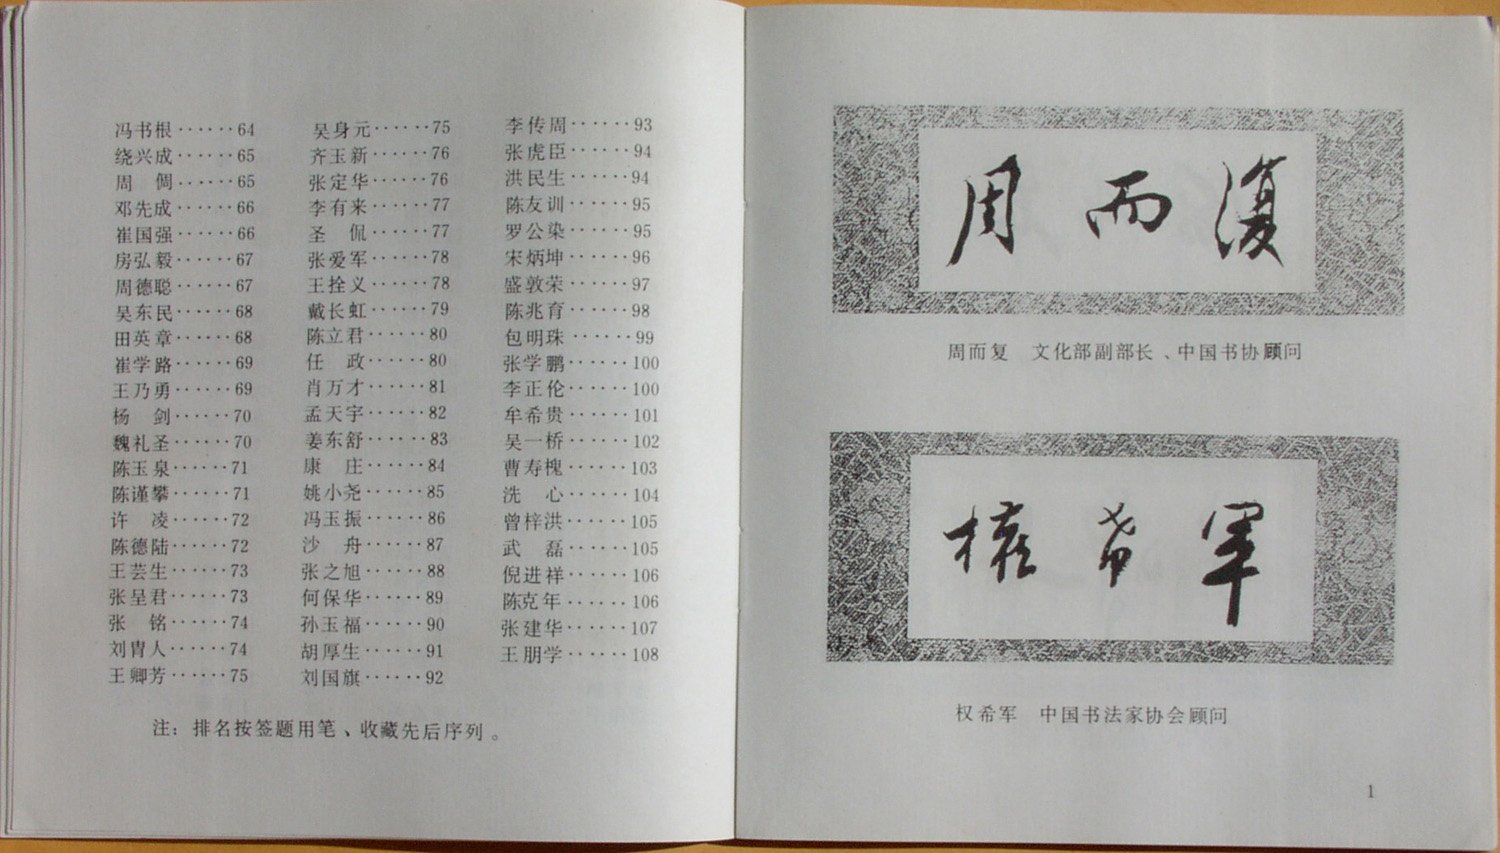 冯书根······64
绕兴成······65
周　倜······65
邓先成······66
崔国强······66
房弘毅······67
周德聪······67
吴东民······68
田英章······68
崔学路······69
王乃勇······69
杨　剑······70
魏礼圣······70
陈玉泉······71
陈谨攀······71
许　凌······72
陈德陆······72
王芸生······73
张呈君······73
张　铭······74
刘胄人······74
王卿芳······75
吴身元······75
齐玉新······76
张定华······76
李有来······77
圣　侃······77
张爱军······78
王拴义······78
戴长虹······79
陈立君······80
任　政······80
肖万才······81
孟天宇······82
姜东舒······83
康　庄······84
姚小尧······85
冯玉振······86
沙　舟······87
张之旭······88
何保华······89
孙玉福······90
胡厚生······91
刘国旗······92
李传周······93
张虎臣······94
洪民生······94
陈友训······95
罗公染······95
宋炳坤······96
盛敦荣······97
陈兆育······98
包明珠······99
张学鹏······100
李正伦······100
牟希贵······101
吴一桥······102
曹寿槐······103
洗　心······104
曾梓洪······105
武　磊······105
倪进祥······106
陈克年······106
张建华······107
王朋学······108
注：排名按签题用笔、收藏先后序列。
周而復
周而复　文化部副部长、中国书协顾问
権希军
权希军　中国书法家协会顾问
1